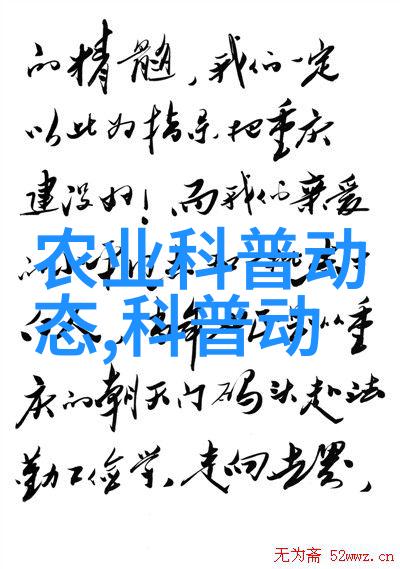 的精髓，我们一定
以此为指导把重庆
建设好！而我们亲爱
农业科普动
态,科普动
庆的朝天门码头赴法
勤工俭学，走向世界，
无为斋 52wwz.cn